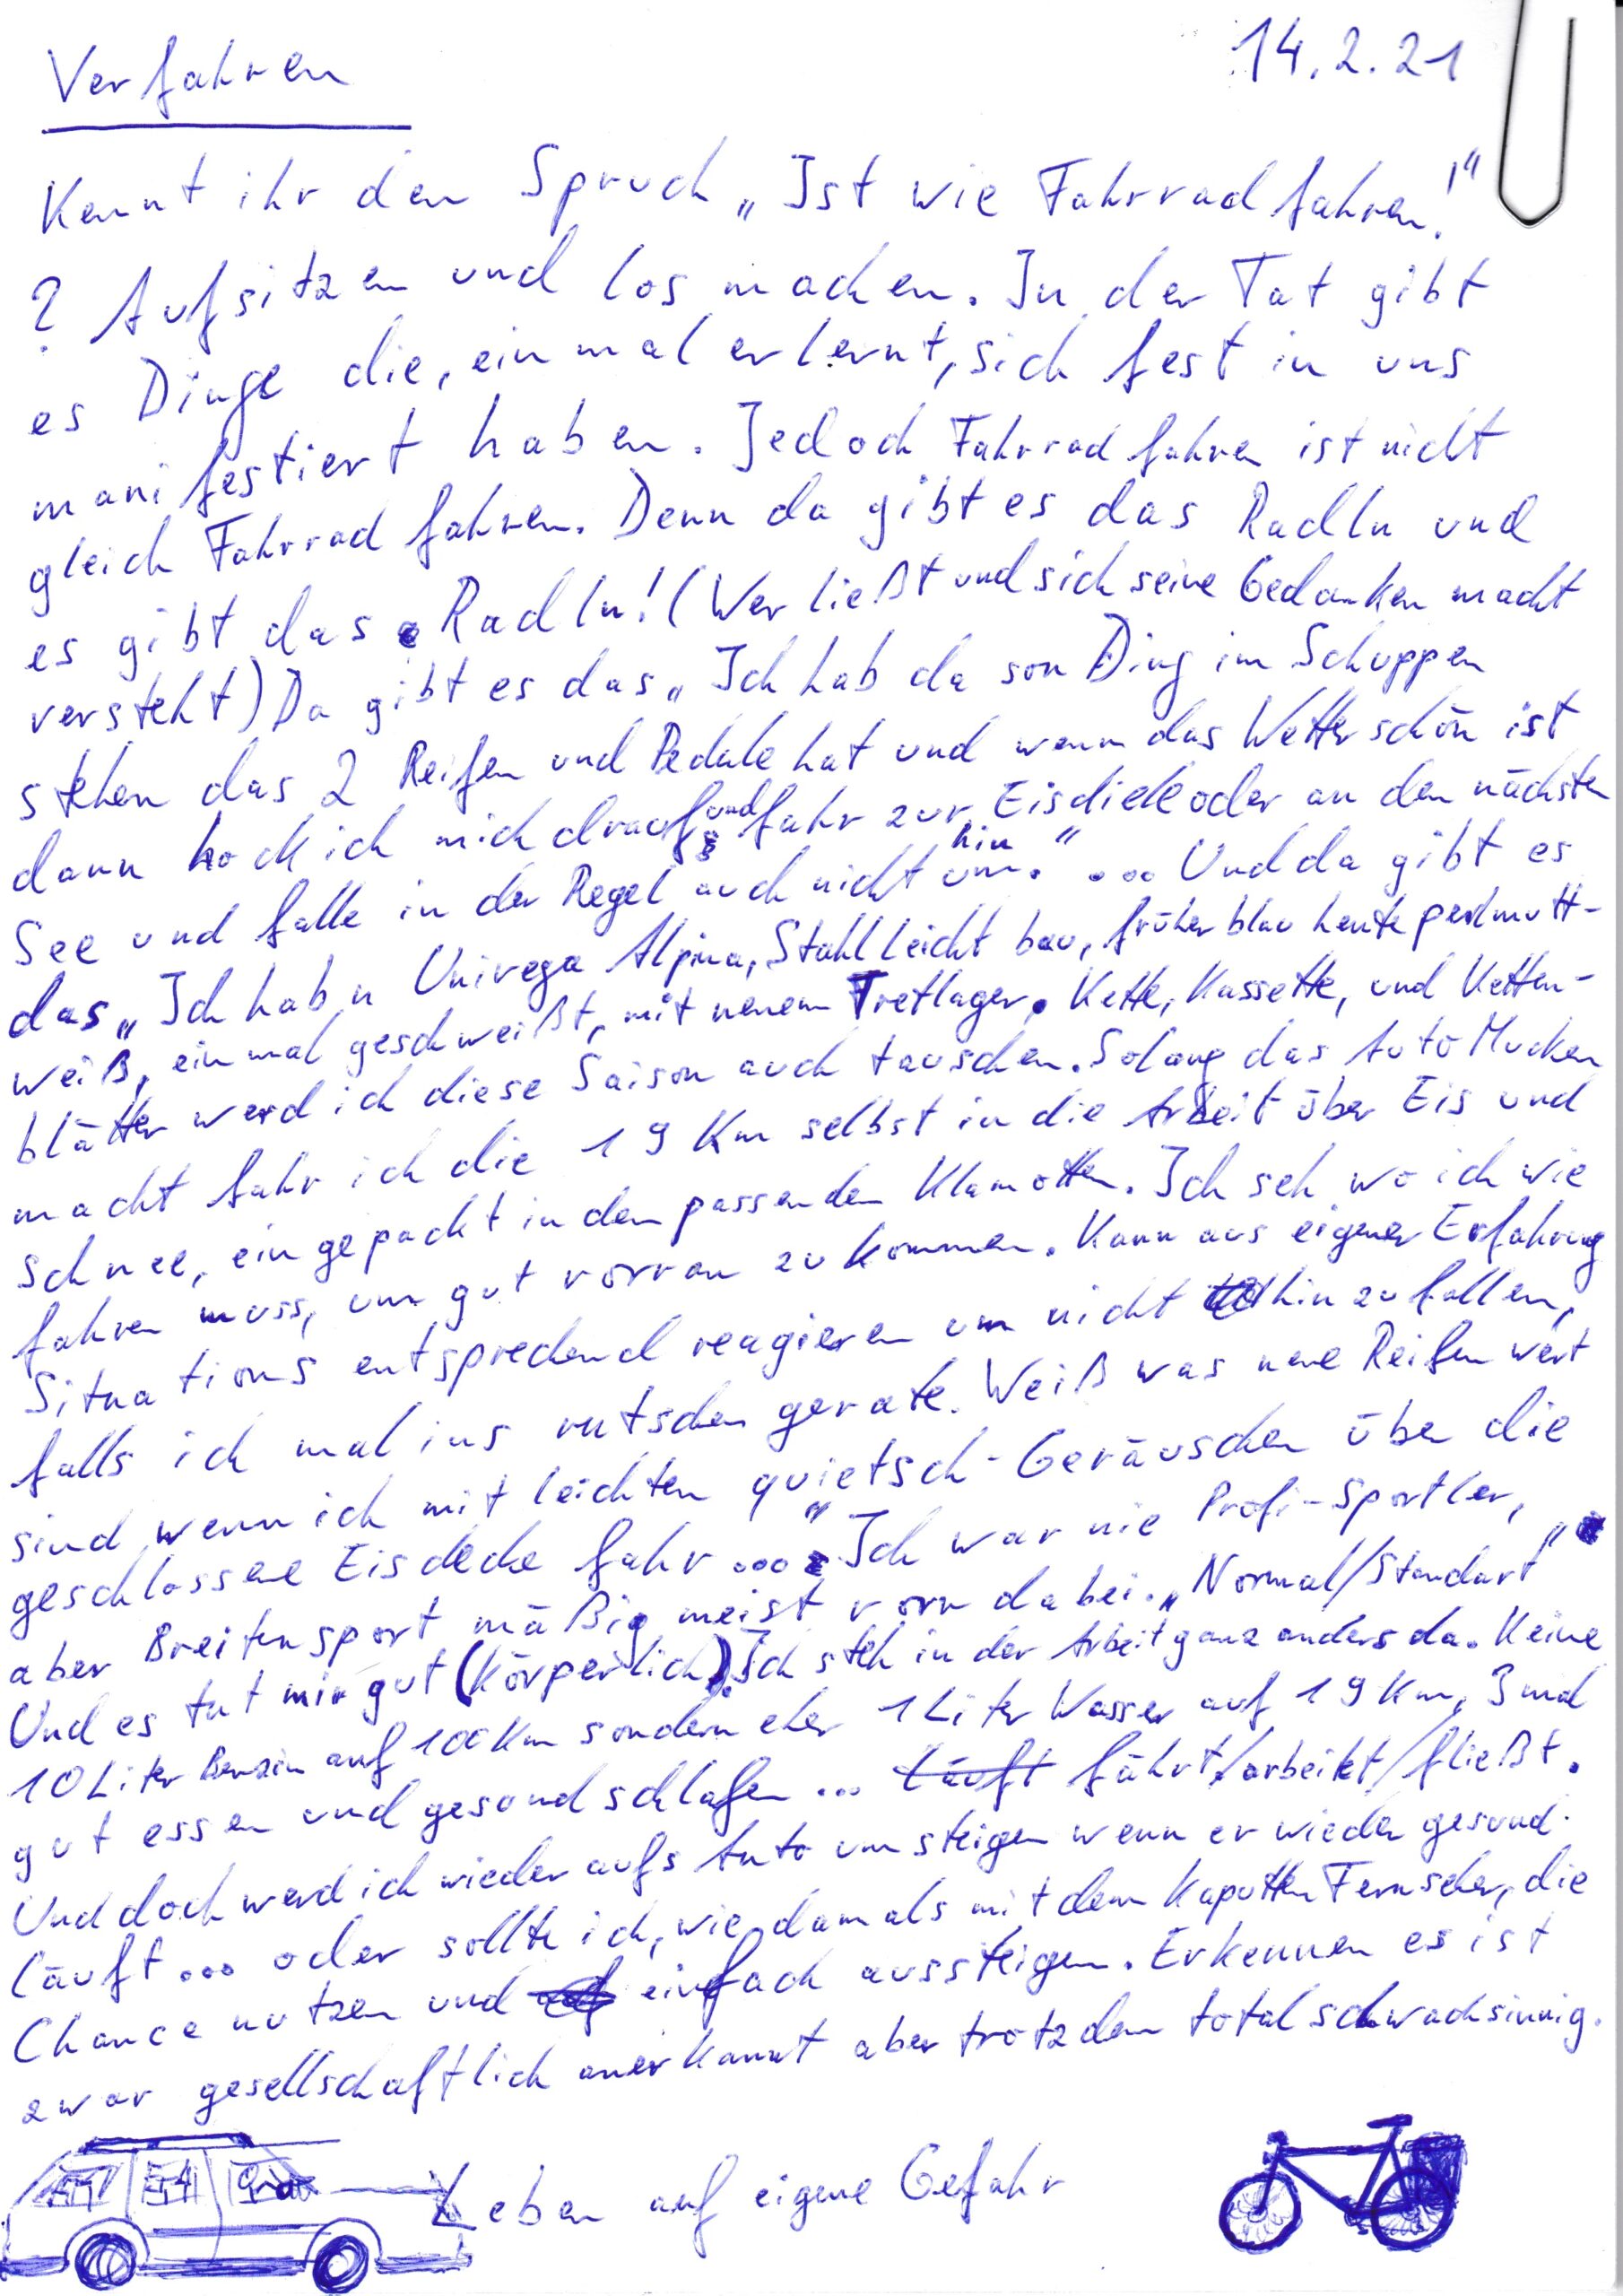 Verfahren
14.2.21
Kennt ihr den Spruch „Ist wie Fahrrad fahren!"
? Aufsitzen und los machen. In der Tat gibt
es Dinge die, einmal erlernt, sich fest in uns
manifestiert haben. Jedoch Fahrrad fahren ist nicht
gleich Fahrrad fahren. Denn da gibt es das Radln und
es gibt das Radln! (Wer ließt und sich seine Gedanken macht
versteht) Da gibt es das „Ich hab da son Ding im Schuppen
stehen das 2 Reifen und Pedale hat und wenn das Wetter schön ist
dann hock ich mich drauf und fahr zur Eisdiele oder an den nächsten
See und falle in der Regel auch nicht um/hin." ... Und da gibt es
das „Ich hab n Univega Alpina, Stahlleicht bau, früher blau heute perlmutt-
weiß, einmal geschweißt, mit neuem Tretlager. Kette, Kassette, und Ketten-
blätter werd ich diese Saison auch tauschen. Solang das Auto Mucken
macht fahr ich die 19 Km selbst in die Arbeit über Eis und
Schnee, eingepackt in den passenden Klamotten. Ich seh wo ich wie
fahren muss, um gut vorran zu kommen. Kann aus eigener Erfahrung
Situations entsprechend reagieren um nicht hin zu fallen,
falls ich mal ins rutschen gerate. Weiß was neue Reifen wert
sind wenn ich mit leichten quietsch-Geräuschen über die
geschlossene Eisdecke fahr..." Ich war nie Profi-Sportler,
aber Breitensport mäßig meist vorn dabei. „Normal/Standart"
Und es tut mir gut (Körperlich). Ich steh in der Arbeit ganz anders da. Keine
10 Liter Benzin auf 100 Km sondern eher 1 Liter Wasser auf 19 Km, 3 mal
gut essen und gesund schlafen ... läuft fährt/arbeitet/fließt.
Und doch werd ich wieder aufs Auto umsteigen wenn er wieder gesund
läuft ... oder sollte ich, wie damals mit dem Kaputten Fernseher, die
Chance nutzen und einfach aussteigen. Erkennen es ist
zwar gesellschaftlich anerkannt aber trotzdem total schwachsinnig.
Leben auf eigene Gefahr